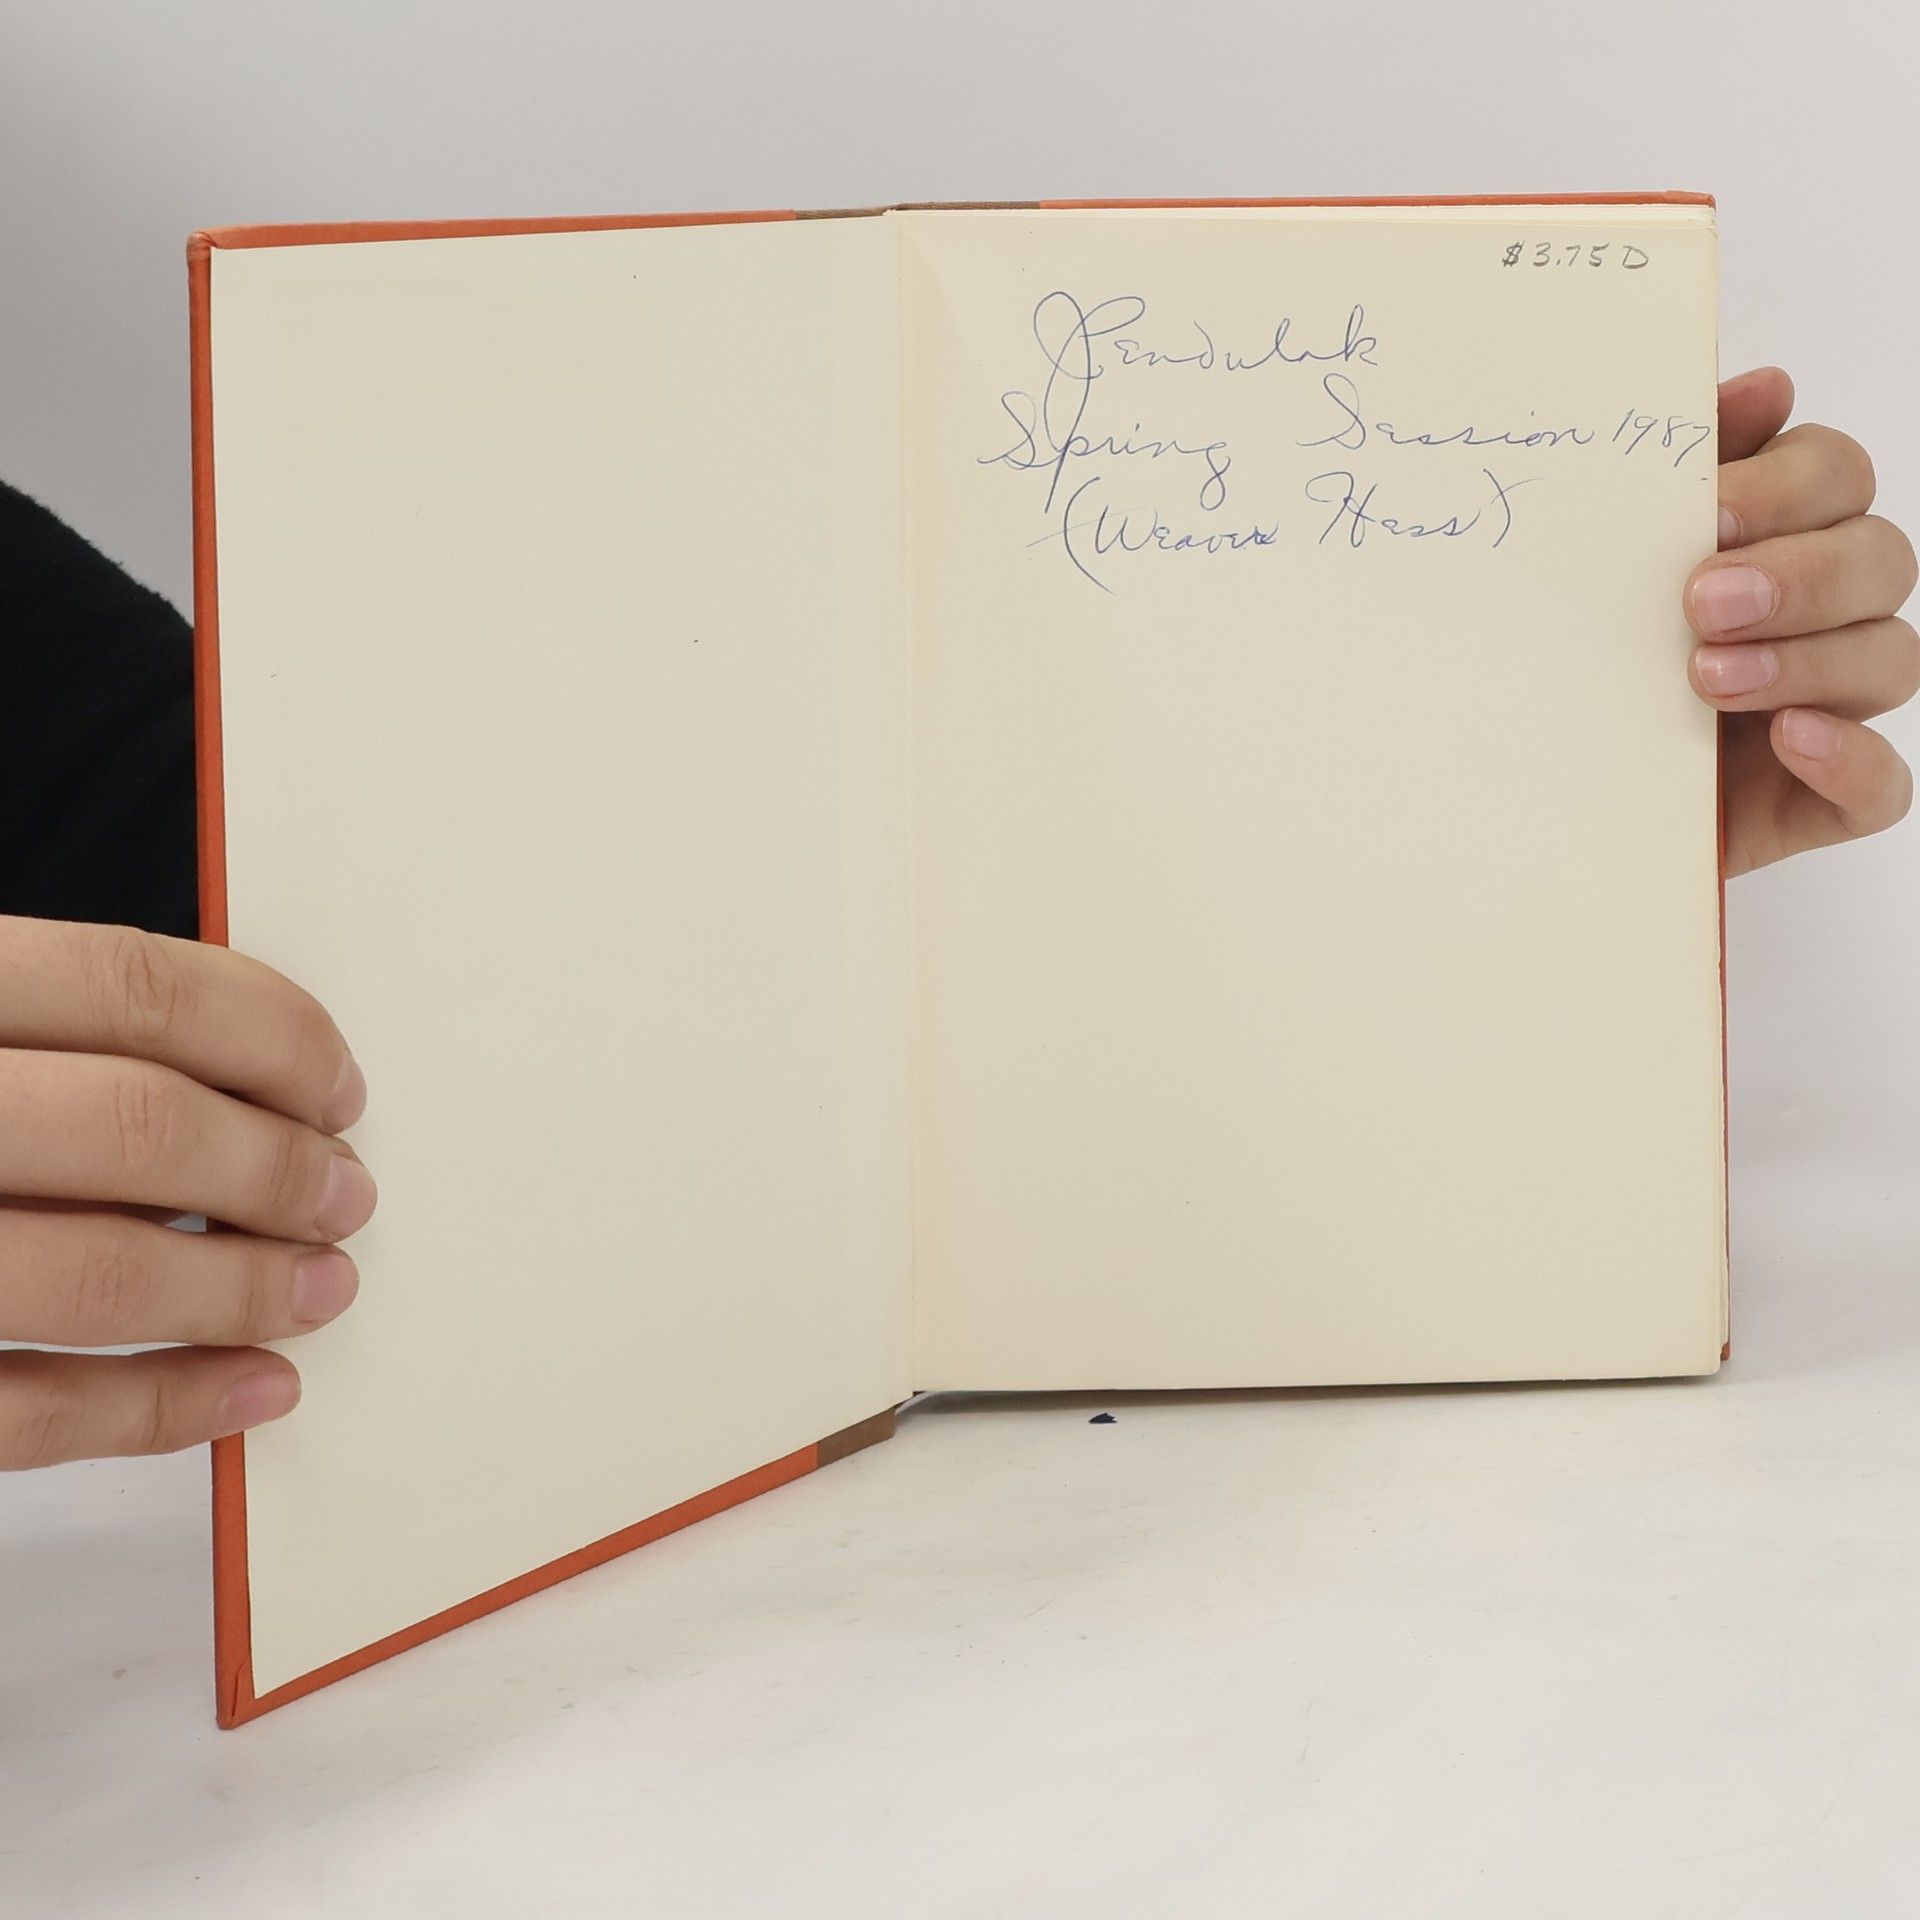 $3.75 D
JPendulak
Spring Session 1987
(Weaver Hess)